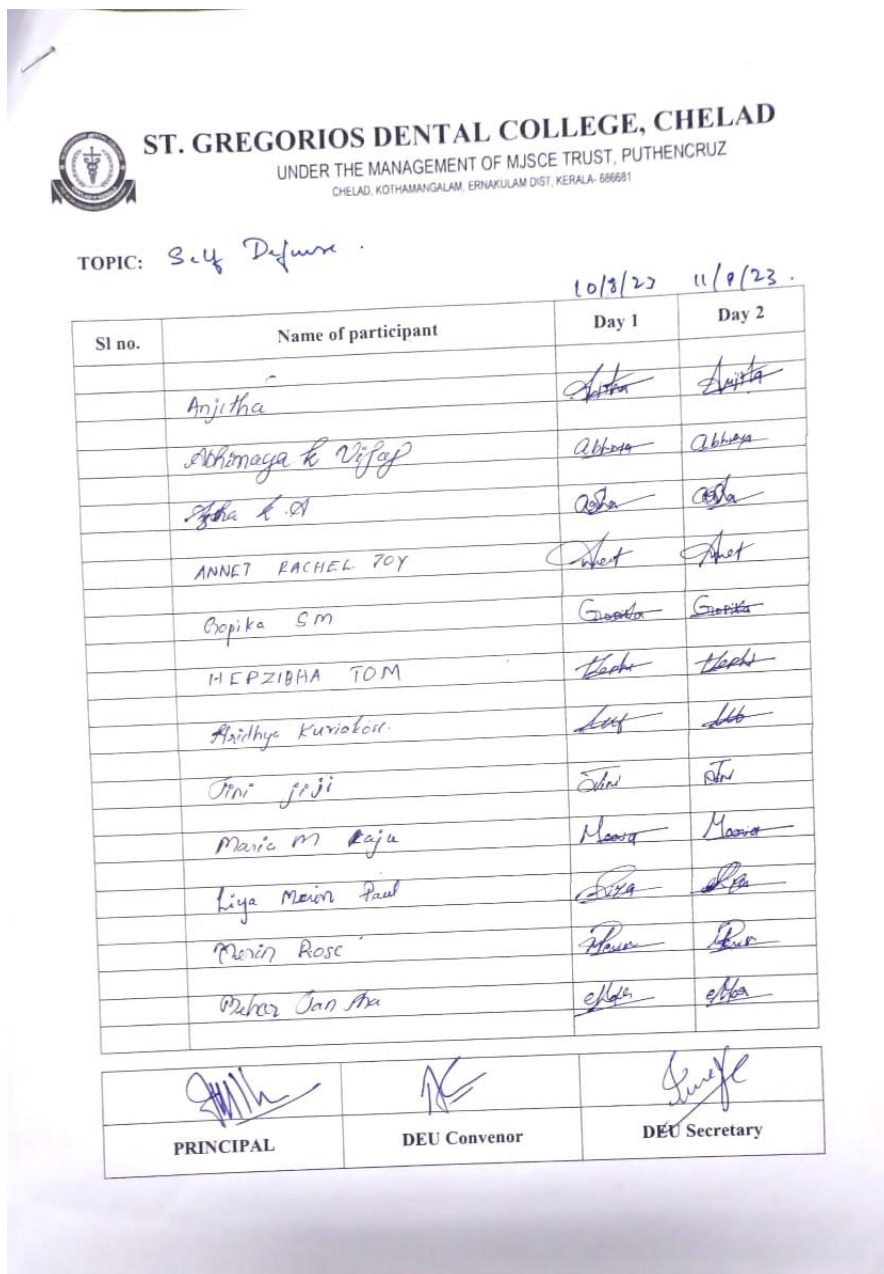 ST. GREGORIOS DENTAL COLLEGE, CHELAD
UNDER THE MANAGEMENT OF MJSCE TRUST, PUTHENCRUZ
CHELAD, KOTHAMANGALAM, ERNAKULAM DIST, KERALA- 686681
TOPIC: Self Defense.
10/8/23 11/8/23.
Sl no. Name of participant Day 1 Day 2
Anjitha
Abhimaya k Vijay Abhaya Abhaya
k.A Asha Asha
ANNET RACHEL JOY Annet Annet
Gopika SM Gopika Gopika
HEPZIBHA TOM Hephi Hephi
Kuriakose.
Jini jiji Jini Jini
Maria M Raju Maria Maria
Liya Merin Paul Liya Liya
Merin Rose Merin Merin
Mehar Jan
PRINCIPAL DEU Convenor DEU Secretary